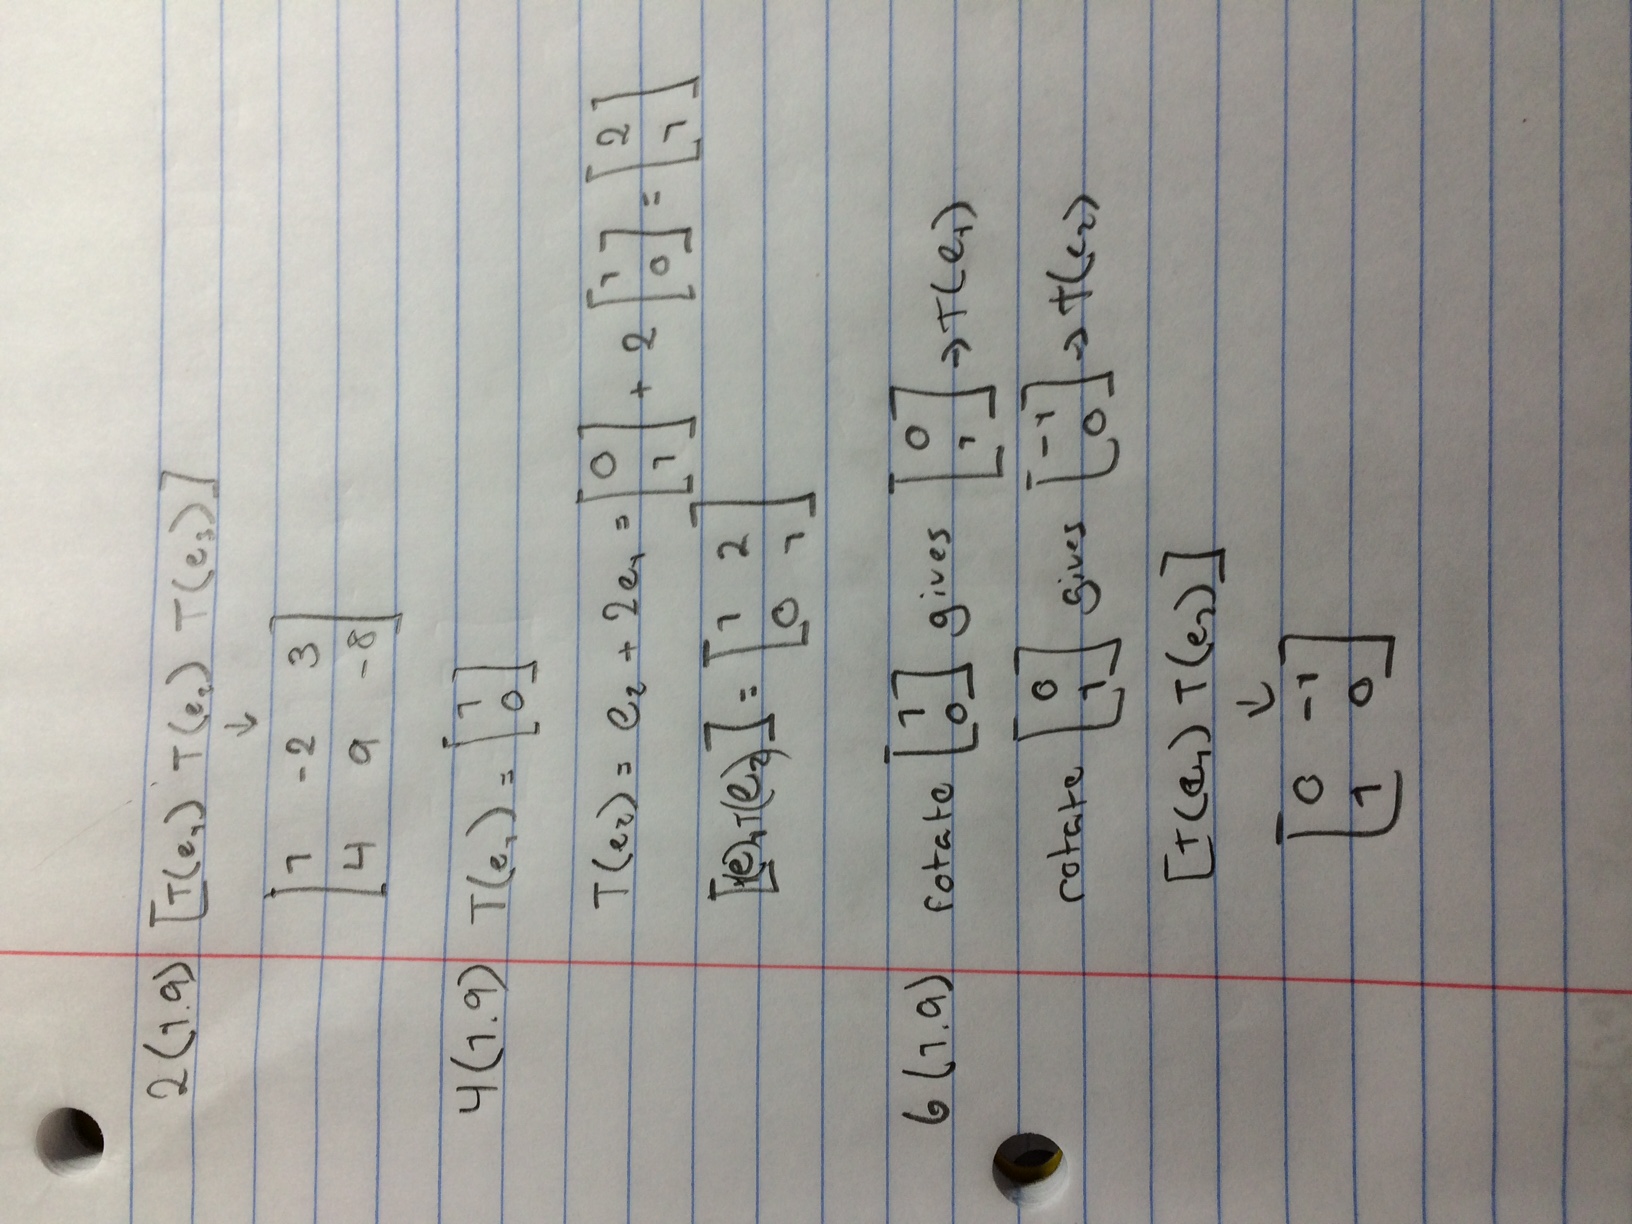 2(1.9) [T(e₁) T(e₂) T(e₃)]
↓
[1 -2 3
4 9 -8]
4(1.9) T(e₁) = [1
0]
T(e₂) = e₂ + 2e₁ = [0
1] + 2 [1
0] = [2
1]
[T(e)₁ T(e₂)] = [1 2
0 1]
6(1.9) rotate [1
0] gives [0
1] → T(e₁)
rotate [0
1] gives [-1
0] → T(e₂)
[T(e₁) T(e₂)]
↓
[0 -1
1 0]